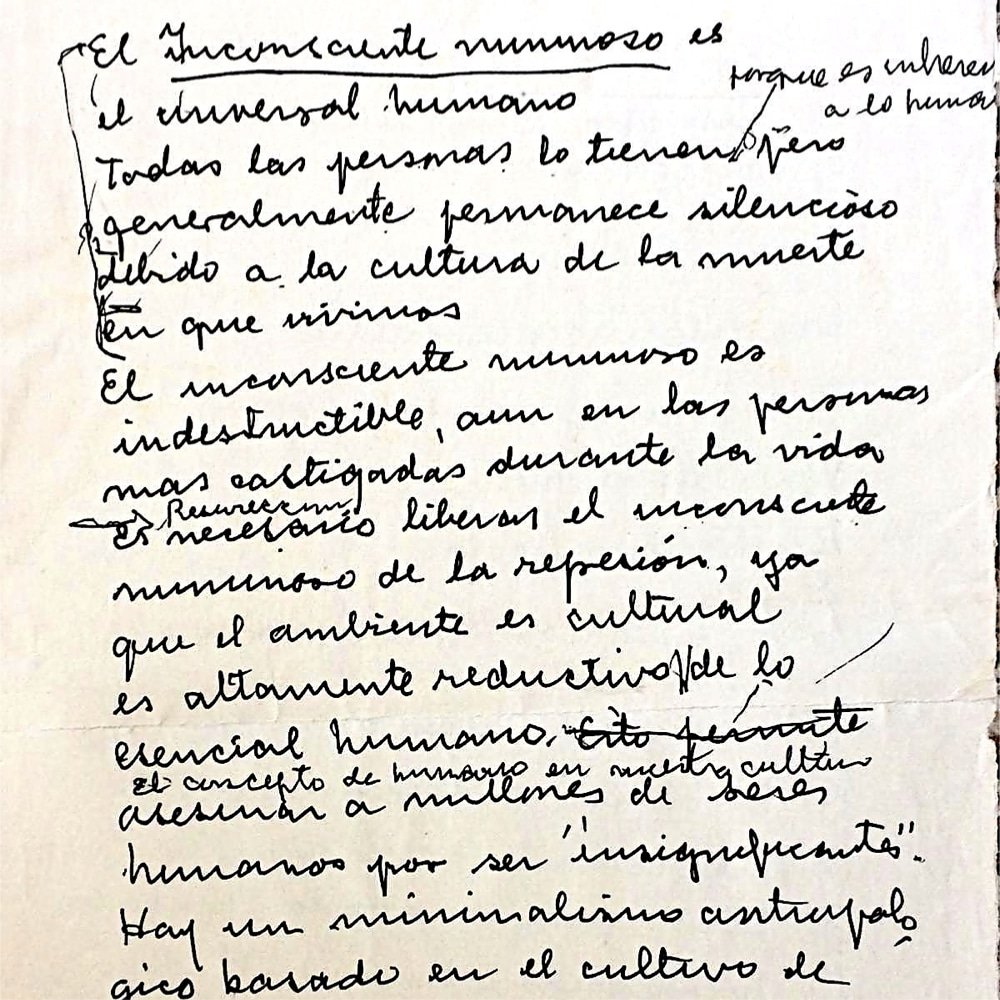 El Inconsciente numinoso es
porque es inheren
a lo huma
el universal humano
Todas las personas lo tienen, pero
generalmente permanece silencioso
debido a la cultura de la muerte
en que vivimos
El inconsciente numinoso es
indestructible, aun en las personas
mas castigadas durante la vida
Resurreccion
Es necesario liberar el inconsciente
numinoso de la represión, ya
que el ambiente es cultural
es altamente reductivo de lo
esencial humano. Esto permite
El concepto de humano en nuestra cultura
asesinar a millones de seres
humanos por ser "insignificantes".
Hay un minimalismo antropoló
gico basado en el cultivo de